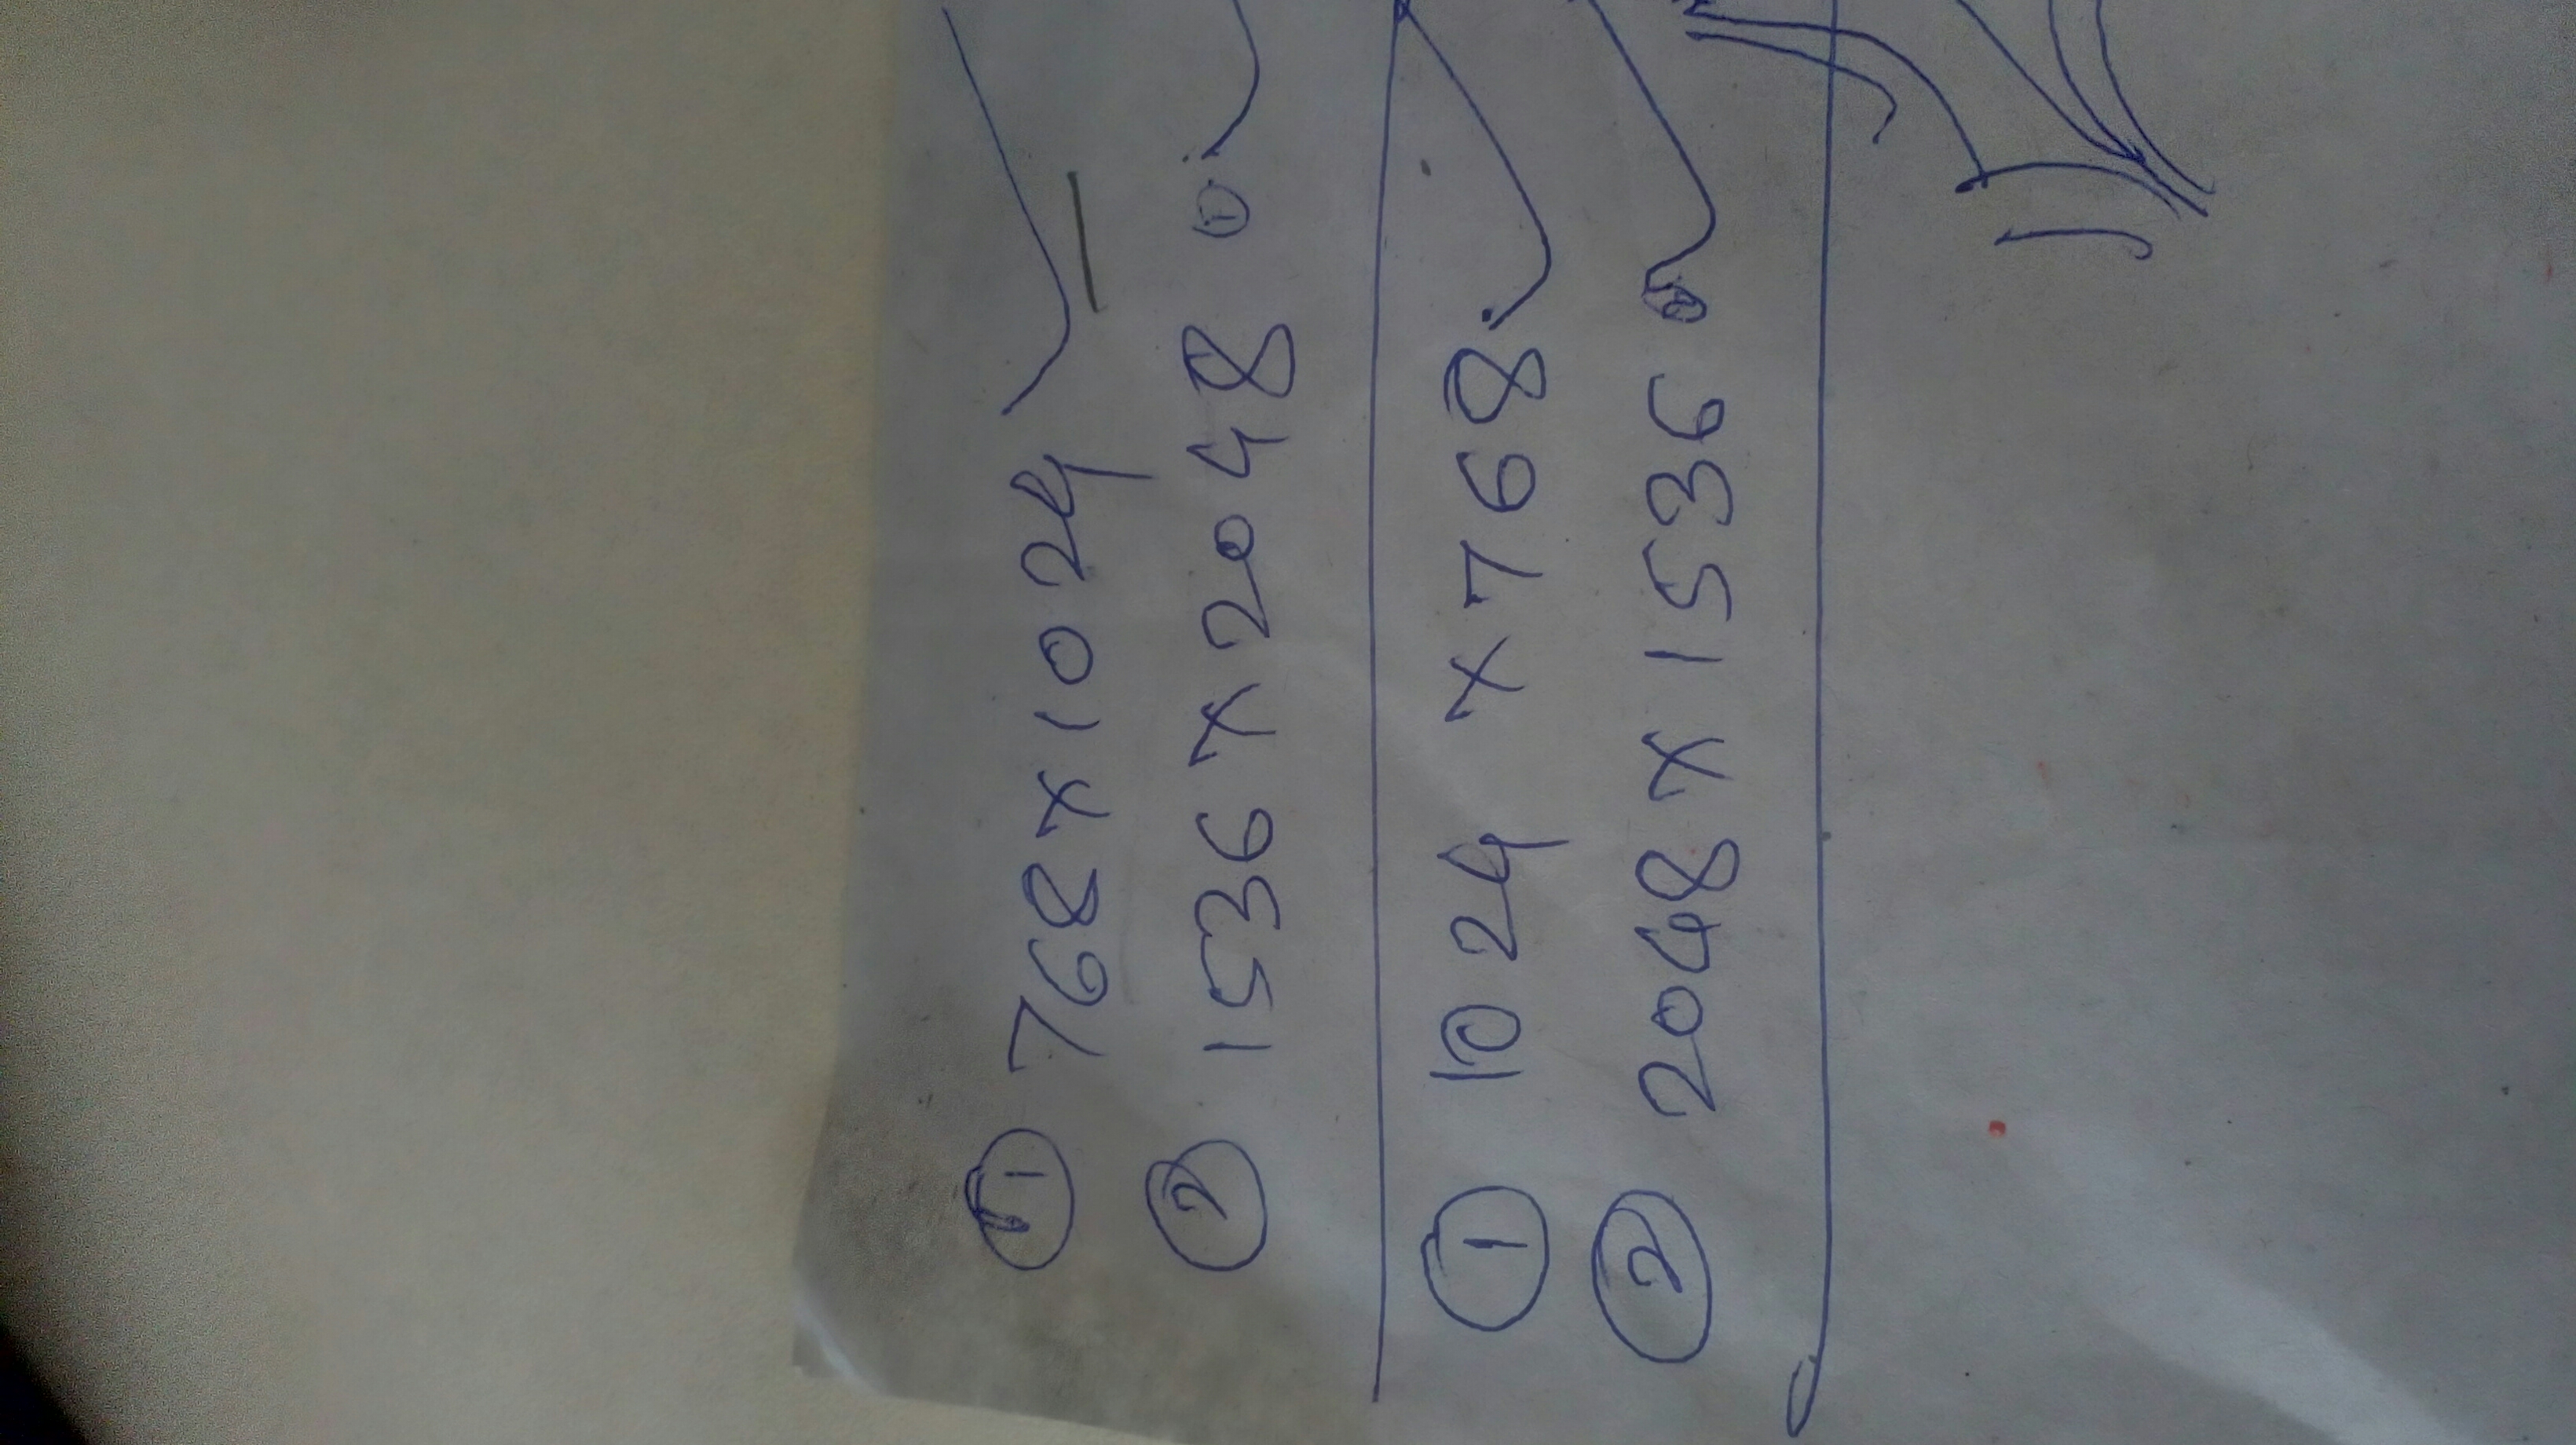 ① 768 x 1024
② 1536 x 2048
① 1024 x 768
② 2048 x 1536